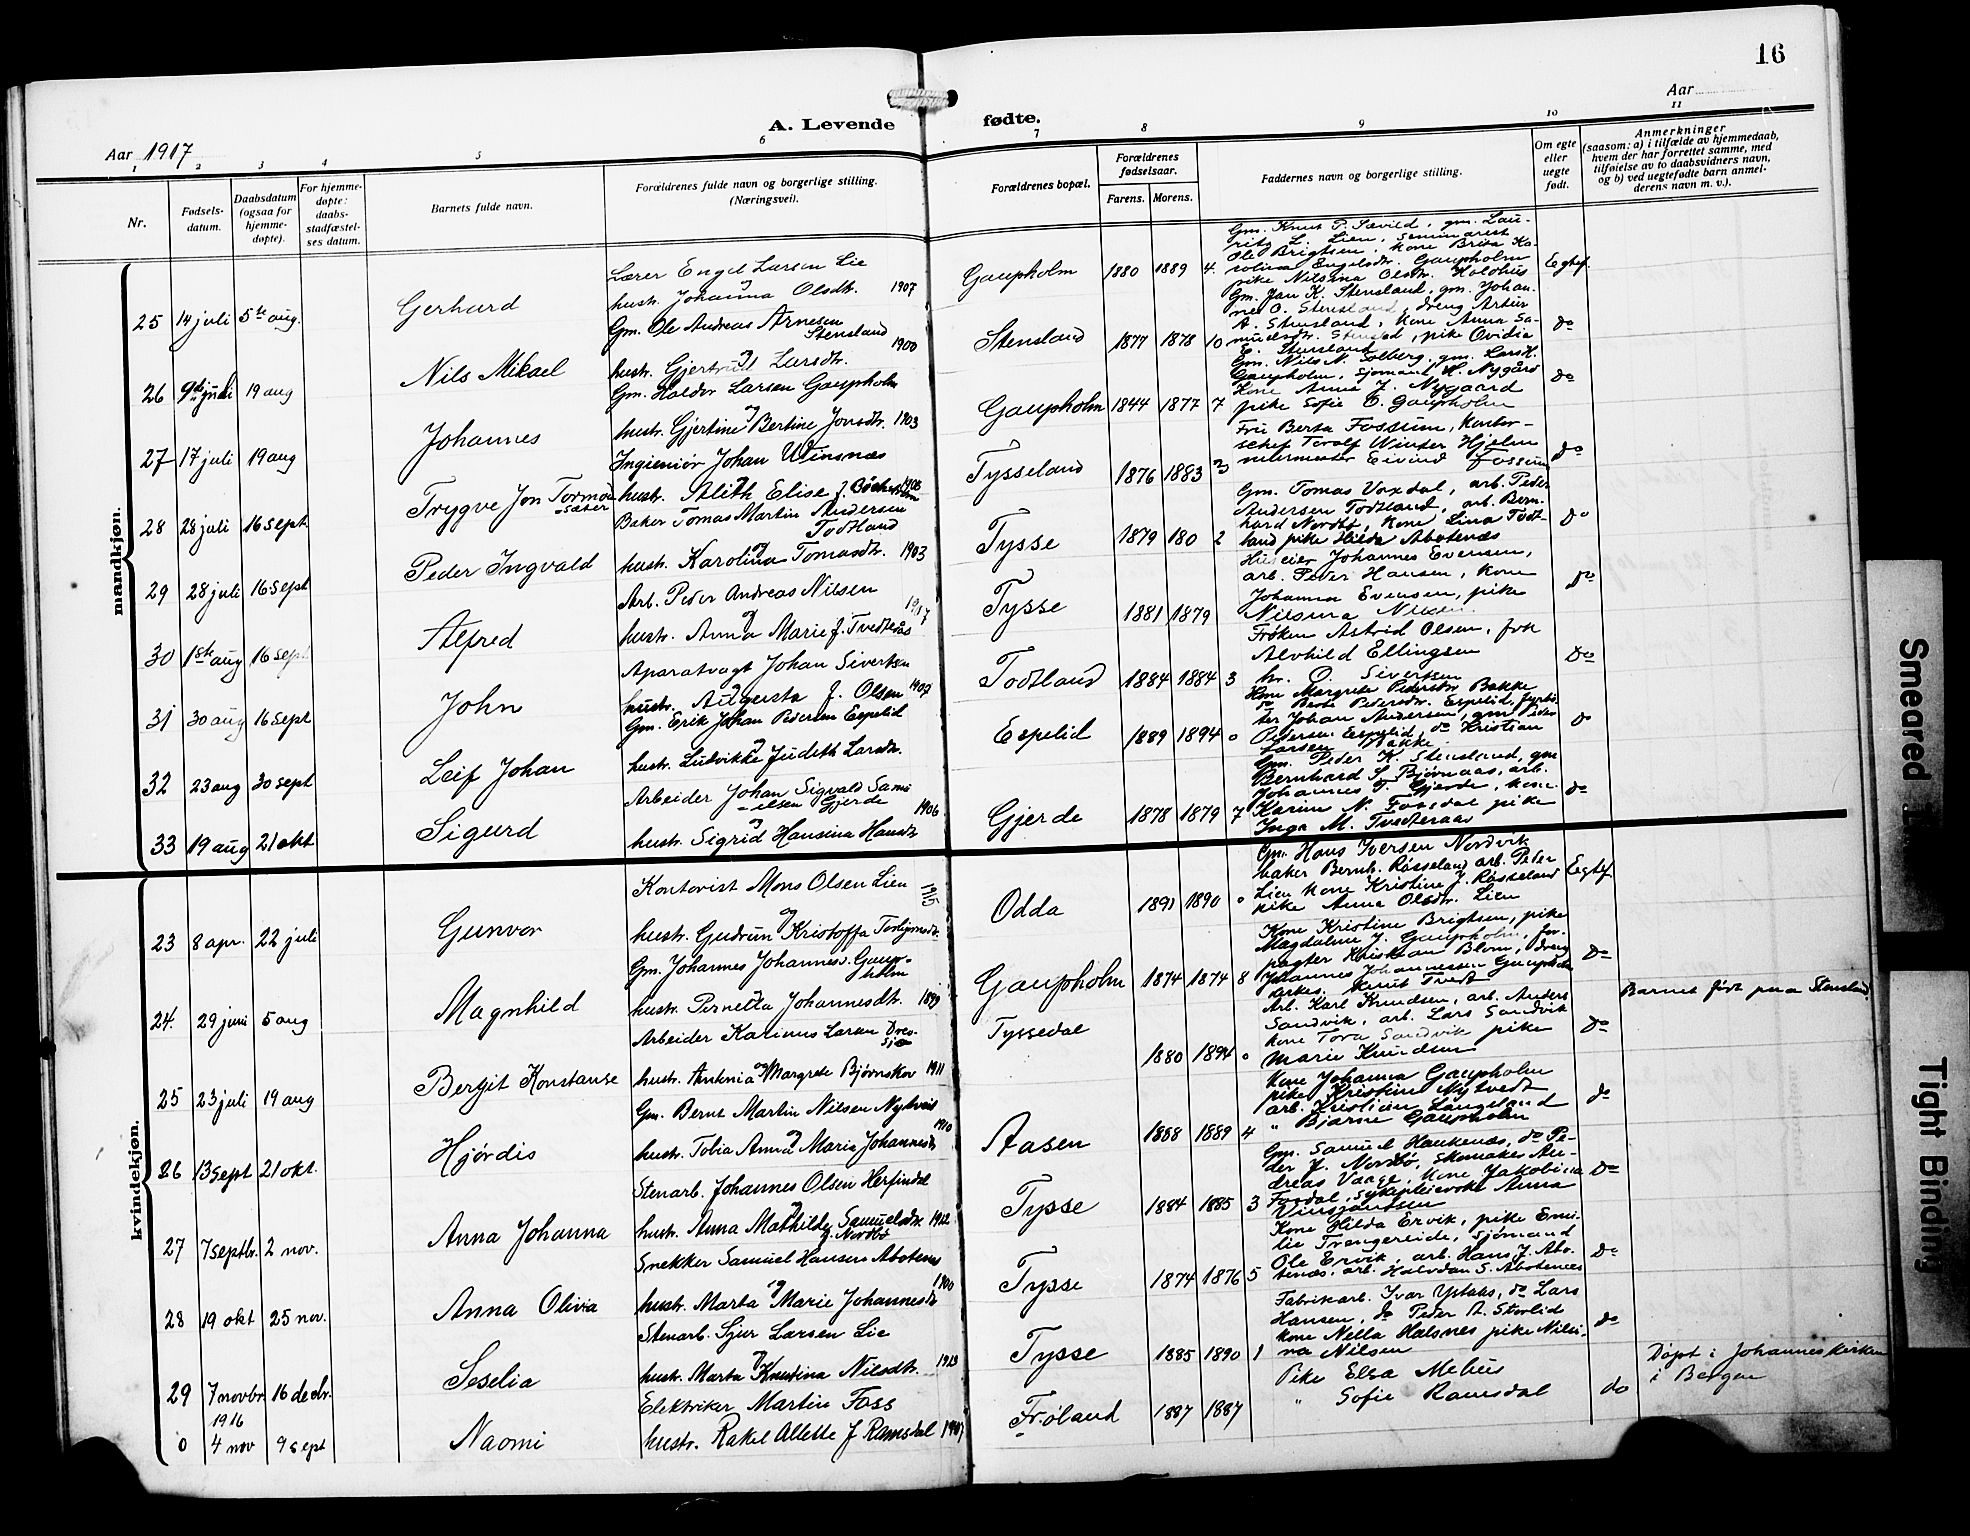 16
A. Levende fødte.
Aar 1917
Aar
1 2 3 4 5 6 7 8 9 10 11
Nr.
Fødsels-
datum.
Daabsdatum
(ogsaa for
hjemme-
døpte).
For hjemme-
døpte:
daabs-
stadfæstel-
ses datum.
Barnets fulde navn.
Forældrenes fulde navn og borgerlige stilling.
(Næringsvei).
Forældrenes bopæl.
Forældrenes
fødselsaar.
Farens. Morens.
Faddernes navn og borgerlige stilling.
Om egte
eller
uegte
født.
Anmerkninger
(saasom: a) i tilfælde av hjemmedaab,
hvem der har forrettet samme, med
tilføielse av to daabsvidners navn,
og b) ved uegtefødte barn anmel-
derens navn m. v.).
mandkjøn.
25 14 juli 5te aug. Gerhard
Lærer Engel Larsen Lie
og
hustr. Johanna Olsdtr. 1907
Gaupholm 1880 1889 4.
Gm. Knut P. Sævild, gm. Lau-
ritz L. Lien, seminarist
Ole Brigtsen, kone Brita Ka-
rolina Engelsdtr. Gaupholm
pike Nilsina Olsdtr. Holdhus
Egtef.
26 9de juli 19 aug Nils Mikael
Gm. Ole Andreas Arnesen
Stensland
og 1900
hustr. Gjertrud Larsdtr.
Stensland 1877 1878 10
Gm. Jan K. Stensland, gm. Johan-
nes O. Stensland, dreng Artur
A. Stensland, kone Anna Sa-
muelsdtr. Stensland, pike Ovidia
E. Stensland
do
27 17 juli 19 aug Johannes
Gm. Haldor Larsen Gaupholm
og
hustr. Gjertine Bertine Jonsdtr. 1903
Gaupholm 1844 1877 7
Gm. Nils N. Solberg, gm. Lars H.
Gaupholm, sjømand H. Nygård
Kone Anna J. Nygaard
pike Sofie E. Gaupholm
do
28 28 juli 16 sept. Trygve Jon Tormod
Sæter
Ingieniør Johan Winsnæs
og
hustr. Alith Elise f.
Tysseland 1876 1883 3
Fru Berta Fossum, Kontor-
schef Toralf Winter Hjelm
Eivind Fossum
do
29 28 juli 16 sept Peder Ingvald
Baker Tomas Martin Andersen
Todtland
og
hustr. Karolina Tomasdtr. 1903
Tysse 1879 180 2
Gm. Tomas Vaxdal, arb. Peder
Andersen Todtland, arb. Bern-
hard Nordbø, kone Lina Todt-
land pike Hilda Abotenæs
do
30 1ste aug 16 sept Alfred
Arb. Peder Andreas Nilsen
og 1917
hustr. Anna Marie f. Tvedteraas
Tysse 1881 1879
Huseier Johannes Evensen,
arb. Peder Hansen, kone
Johanna Evensen, pike
Nilsina Nilsen.
do
31 30 aug 16 sept John
Aparatvagt Johan Sivertsen
og 1907
hustr. Augusta f. Olsen
Todtland 1884 1884 3
Frøken Astrid Olsen, frk
Alvhild Ellingsen
hr. O. Sivertsen
do
32 23 aug 30 sept Leif Johan
Gm. Erik Johan Pedersen Espelid
og
hustr. Ludvikke Judith Larsdtr.
Espelid 1889 1894 0
Kone Margrete Pedersdtr Bakke
do Berte Pedersdtr. Espelid, fyrbø-
ter Johan Andersen, gm Peder
Pedersen Espelid, do Kristian
Larsen Bakke
do
33 19 aug 21 okt Sigurd
Arbeider Johan Sigvald Sam-
uelsen Gjerde
og 1906
hustr. Sigrid Hansina Hansdtr
Gjerde 1878 1879 7
Gm. Peder K. Stensland, gm
Bernhard S. Bjørnaas, arb.
Johannes T. Gjerde, kone
Karine N. Fossdal pike
Inga M. Tvedteraas
do
kvindekjøn.
23 8 apr. 22 juli Gunvor
Kontorist Mons Olsen Lien 1915
og
hustr. Gudrun Kristoffa
Odda 1891 1890 0
Gm. Hans Iversen Nordvik
baker Bernh. Røsseland arb. Peder
Lien kone Kristine J. Røsseland
pike Anna Olsdtr. Lien
Egtef.
24. 29 juni 5 aug Magnhild
Gm. Johannes Johannes. Gaup-
holm
og
hustr. Pernella Johannesdtr. 1899
Gaupholm 1874 1874 8
Kone Kristine Brigtsen, pike
Magdalene J. Gaupholm, for-
pagter Kristian Blom, dreng
Johannes Johannessen Gaupholm
pikes. Knut Tvedt
do
25 23 juli 19 aug Bergit Konstanse
Arbeider Karinus Larsen
og
hustr. Antonia Margrete Bjørnskov 1911
Tyssedal
1880 1894 0
Arb. Karl Knudsen, arb. Anders
Sandvik, arb. Lars Sandvik
kone Tora Sandvik pike
Marie Knudsen
do
Barnet født paa Stensland.
26 13 sept 21 okt. Hjørdis
Gm. Bernt Martin Nilsen Nytveit
og 1910
hustr. Tobia Anna Maria Johannesdtr
Aasen 1888 1889 4
Kone Johanna Gaupholm
pike Kristine Nytvedt
arb. Kristian Langeland
" Bjarne Gaupholm
do
27 7 septbr. 2 nov. Anna Johanna
Stenarb. Johannes Olsen Herfindal
og
hustr. Anna Mathilde Samuelsdtr. 1912
f. Nordbø
Tysse 1884 1885 3
Gm. Samuel Haukenæs, do Pe-
der J. Nordbø, Skomaker An-
dreas Vaage, kone Jakobina
Fossdal, sykepleierske Anna
Vinsjansen
do
28 19 okt 25 nov. Anna Olivia
Snekker Samuel Hansen Abotenæs
og 1900
hustr. Marta Marie Johannesdtr
Tysse 1874 1876 5
Kone Hilda Ervik, pike Emi-
lie Trengereide, sjømand
Ole Ervik, arb. Hans J. Abo-
tenæs, arb. Halvdan S. Abotenæs
do
29 7 novbr 16 decbr. Seselia
Stenarb. Sjur Larsen Lie
og
hustr. Marta Knutina Nilsdtr. 1913
Tysse 1885 1890 1
Fabrikarb. Ivar Yptøs, do Lars
Hansen, do Peder A. Storlid
kone Nella Halsnes pike Nilsi-
na Nilsen
do
1916
0 4 nov 9 sept Naomi
Elektriker Martin Foss
hustr. Rakel Allette f Ramsdal
Frøland 1887 1887
Pike Elsa Mehus
" Sofie Ramsdal
do
Døpt i Johanneskirken
i Bergen
Smeared
Tight Binding